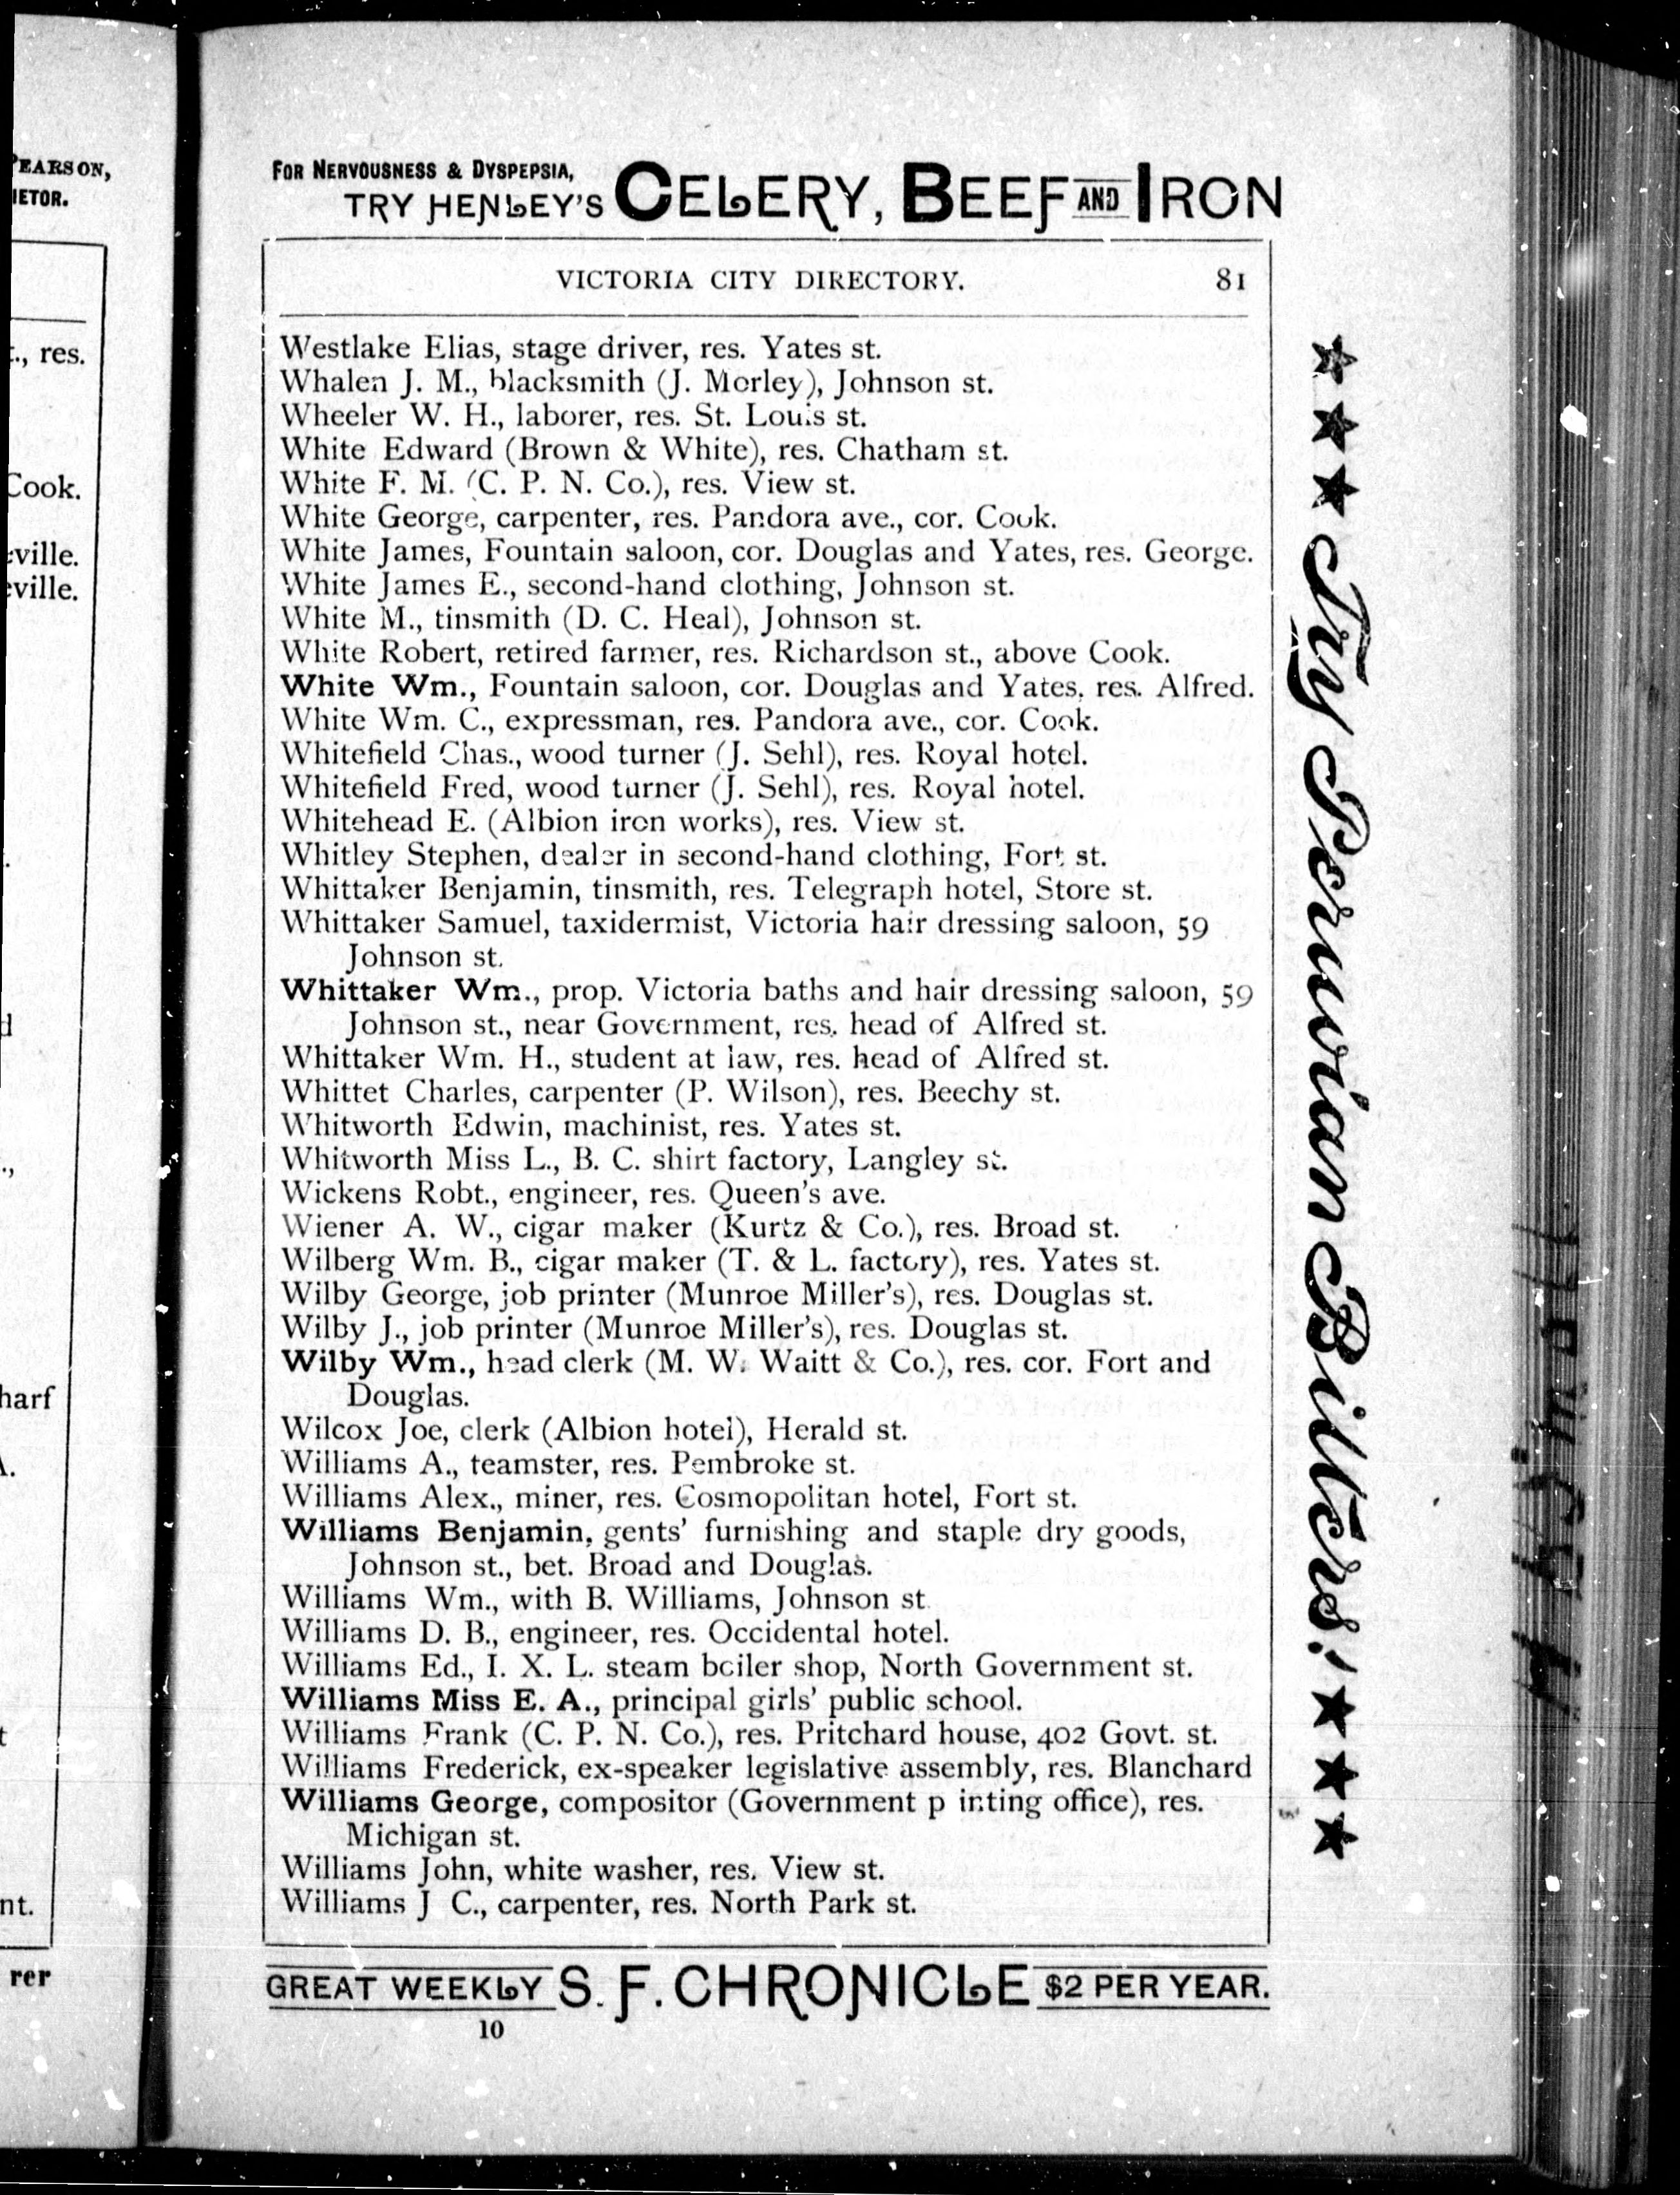 PEARSON,
IETOR.
., res.
Cook.
ville.
ville.
harf
nt.
rer
FOR NERVOUSNESS & DYSPEPSIA,
TRY HENLEY'S CELERY, BEEF AND IRON
VICTORIA CITY DIRECTORY. 81
Westlake Elias, stage driver, res. Yates st.
Whalen J. M., blacksmith (J. Morley), Johnson st.
Wheeler W. H., laborer, res. St. Louis st.
White Edward (Brown & White), res. Chatham st.
White F. M. (C. P. N. Co.), res. View st.
White George, carpenter, res. Pandora ave., cor. Cook.
White James, Fountain saloon, cor. Douglas and Yates, res. George.
White James E., second-hand clothing, Johnson st.
White M., tinsmith (D. C. Heal), Johnson st.
White Robert, retired farmer, res. Richardson st., above Cook.
White Wm., Fountain saloon, cor. Douglas and Yates, res. Alfred.
White Wm. C., expressman, res. Pandora ave., cor. Cook.
Whitefield Chas., wood turner (J. Sehl), res. Royal hotel.
Whitefield Fred, wood turner (J. Sehl), res. Royal hotel.
Whitehead E. (Albion iron works), res. View st.
Whitley Stephen, dealer in second-hand clothing, Fort st.
Whittaker Benjamin, tinsmith, res. Telegraph hotel, Store st.
Whittaker Samuel, taxidermist, Victoria hair dressing saloon, 59
Johnson st.
Whittaker Wm., prop. Victoria baths and hair dressing saloon, 59
Johnson st., near Government, res. head of Alfred st.
Whittaker Wm. H., student at law, res. head of Alfred st.
Whittet Charles, carpenter (P. Wilson), res. Beechy st.
Whitworth Edwin, machinist, res. Yates st.
Whitworth Miss L., B. C. shirt factory, Langley st.
Wickens Robt., engineer, res. Queen's ave.
Wiener A. W., cigar maker (Kurtz & Co.), res. Broad st.
Wilberg Wm. B., cigar maker (T. & L. factory), res. Yates st.
Wilby George, job printer (Munroe Miller's), res. Douglas st.
Wilby J., job printer (Munroe Miller's), res. Douglas st.
Wilby Wm., head clerk (M. W. Waitt & Co.), res. cor. Fort and
Douglas.
Wilcox Joe, clerk (Albion hotel), Herald st.
Williams A., teamster, res. Pembroke st.
Williams Alex., miner, res. Cosmopolitan hotel, Fort st.
Williams Benjamin, gents' furnishing and staple dry goods,
Johnson st., bet. Broad and Douglas.
Williams Wm., with B. Williams, Johnson st
Williams D. B., engineer, res. Occidental hotel.
Williams Ed., I. X. L. steam boiler shop, North Government st.
Williams Miss E. A., principal girls' public school.
Williams Frank (C. P. N. Co.), res. Pritchard house, 402 Govt. st.
Williams Frederick, ex-speaker legislative assembly, res. Blanchard
Williams George, compositor (Government p inting office), res.
Michigan st.
Williams John, white washer, res. View st.
Williams J C., carpenter, res. North Park st.
GREAT WEEKLY S. F. CHRONICLE $2 PER YEAR.
10
★★★ Try Peruvian Bitters! ★★★